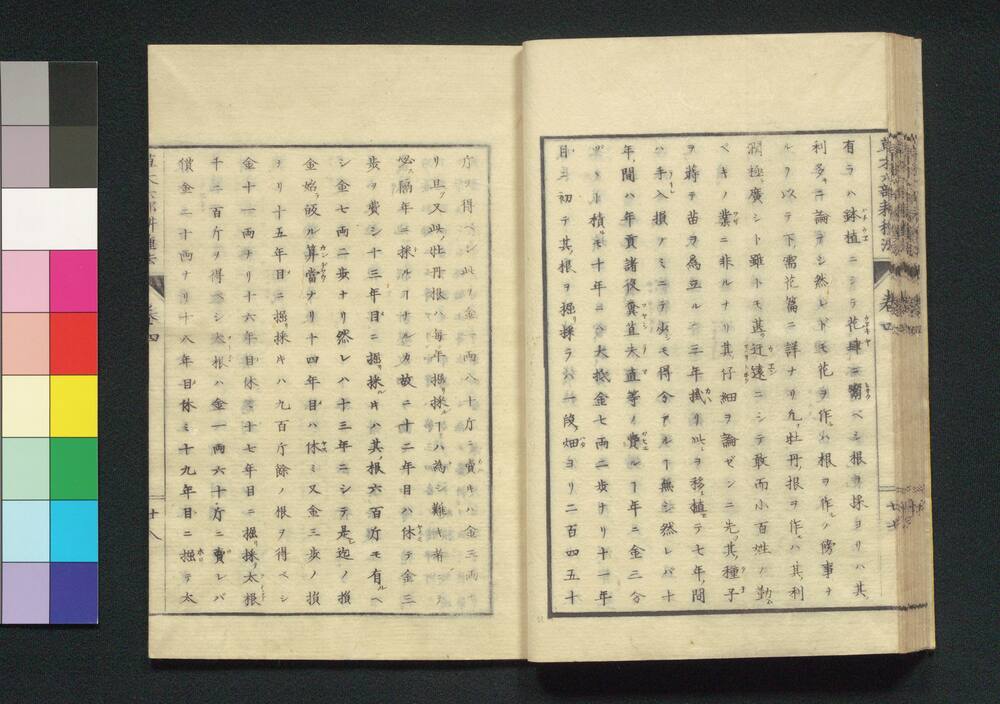 有ラハ鉢植ニシテ花肆ニ鬻ベシ根ヲ採ヨリハ其
利多シニ論ナシ然レドモ花ヲ作ルハ根ヲ作ルノ傍事ヲ
ルヲ以テ下需花篇ニ詳ナリ凡牡丹根ヲ作ルハ其利
潤極廣シト雖トモ甚迂遠ニシテ敢而小百姓ノ勤ム
ベキノ業ニ非ルナリ其仔細ヲ論ゼンニ先其種子
ヲ蒔テ苗ヲ為立ルヿ三年掀リ以ヲ移植テ七年ノ間
ハ手入損ノミニテ少シモ得分アルヿ無シ然レバ十
年ノ間ハ年貢諸役糞直夫直等ノ費ルヿ年ニ金三分
ヅヽト積ルモ十年ニハ大抵金七両二歩ナリ十一年
目ニ初テ其根ヲ掘採ラハ一段ノ畑ヨリ二百四五十
斤ヲ得ベシ此ヲ金一両八十斤ニ賣キハ金三両
リ且ツ又此牡丹根ハ毎年掘採ルヿハ為シ難キ者
必ス隔年ニ採ルヿナルカ故ニ十二年目ハ休テ金三
歩ヲ費シ十三年目ニ掘採ルキハ其根六百斤モ有ルベ
シ金七両二歩ナリ然レハ十三年ニシテ是迄ノ損
金始テ皈ル算當ナリ十四年目ハ休ミ又金三歩ノ損
ヲリ十五年目ニ掘採キハ九百斤餘ノ根ヲ得ベシ
金十一両ナリ十六年目休ミ十七年目ニ掘採リ太根
千二百斤ヲ得ベシ太根ハ金一両六十斤ニ賣レバ
價金二十両ナリ十八年目休ミ十九年目ニ掘テ太
卷四
十八